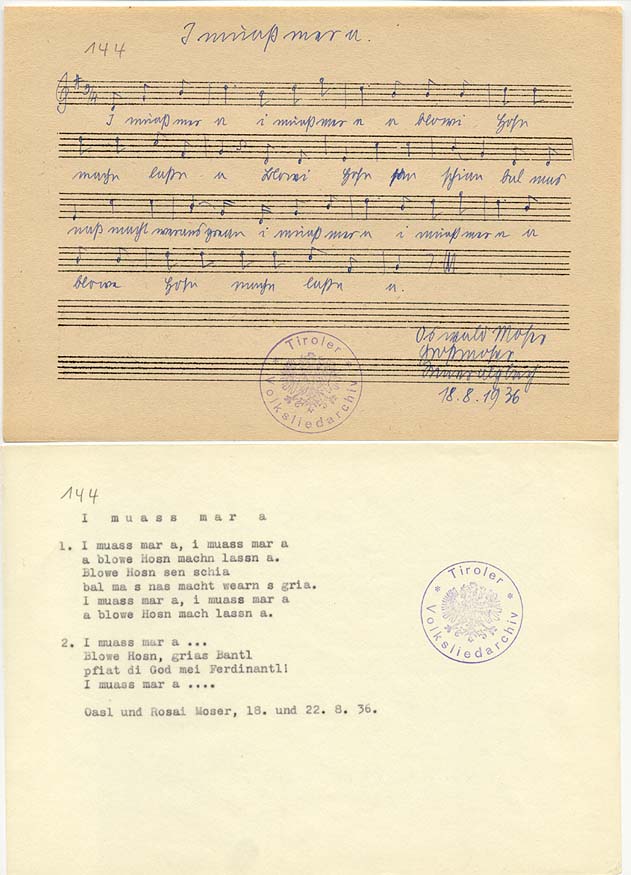 144
I muaß mer a.
I muaß mer a i muaß mer a a blowi Hosn
mache laße a blowi Hosn schian bal mas
naß macht werans grean i muaß mer a i muaß mer a a
blowe Hosn mache laße a.
Oswald Moser
18.8.1936
Tiroler * Volksliedarchiv *
144
I muass mar a
1. I muass mar a, i muass mar a
a blowe Hosn machn lassn a.
Blowe Hosn sen schia
bal ma s nas macht wearn s gria.
I muass mar a, i muass mar a
a blowe Hosn mach lassn a.
2. I muass mar a ...
Blowe Hosn, grias Bantl
pfiat di God mei Ferdinantl!
I muass mar a ....
Oasl und Rosai Moser, 18. und 22. 8. 36.
Tiroler * Volksliedarchiv *